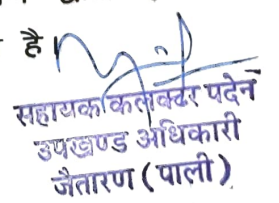 है
सहायक कलक्टर पदेन
उपखण्ड अधिकारी
जैतारण (पाली)